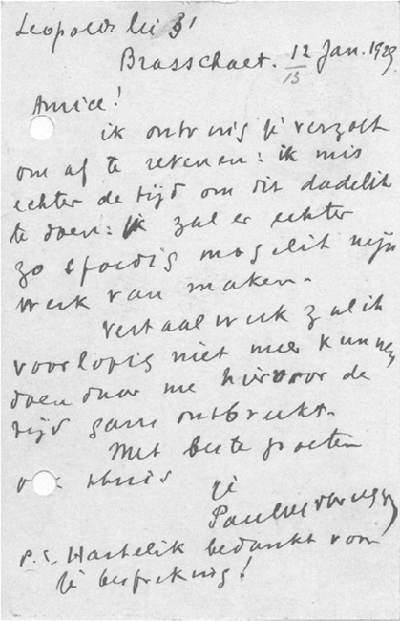 Leopolds lei 31
Brasschaet. 12 Jan. 1923
13
Amice!
ik ontving je verzoek
om af te rekenen: ik mis
echter de tijd om dit dadelik
te doen: ik zal er echter
zo spoedig mogelik mijn
werk van maken.
Vertaalwerk zal ik
voorlopig niet meer kunnen
doen daar me hiervoor de
tijd gans ontbreekt.
Met beste groeten
ook thuis
je
Paul
P.S. Hartelik bedankt voor
je bespreking!